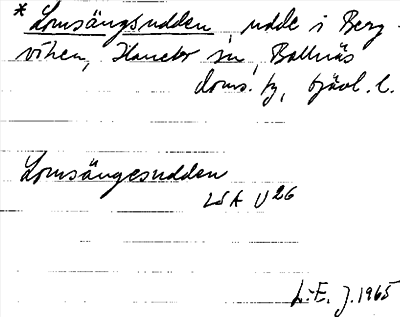 * Lomsängsudden, udde i Berg-
viken, Hanebo sn, Bollnäs
doms. hg, Gävl. l.
Lomsängesudden
LSA U26
L.-E. J. 1965